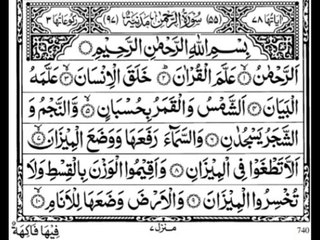 اٰيَاتُهَا ٧٨ (٥٥) سُوْرَةُ الرَّحْمٰنِ مَدَنِيَّةٌ (٩٧) رُكُوْعَاتُهَا ٣
بِسْمِ اللّٰهِ الرَّحْمٰنِ الرَّحِيْمِ
اَلرَّحْمٰنُ ۙ١ عَلَّمَ الْقُرْاٰنَ ۙ٢ خَلَقَ الْاِنْسَانَ ۙ٣ عَلَّمَهُ
الْبَيَانَ ٤ اَلشَّمْسُ وَالْقَمَرُ بِحُسْبَانٍ ۪٥ وَّالنَّجْمُ وَ
الشَّجَرُ يَسْجُدٰنِ ٦ وَالسَّمَآءَ رَفَعَهَا وَوَضَعَ الْمِيْزَانَ ۙ٧
اَلَّا تَطْغَوْا فِى الْمِيْزَانِ ٨ وَاَقِيْمُوا الْوَزْنَ بِالْقِسْطِ وَلَا
تُخْسِرُوا الْمِيْزَانَ ٩ وَالْاَرْضَ وَضَعَهَا لِلْاَنَامِ ۙ١٠
فِيْهَا فَاكِهَةٌ منزل ٧ 740